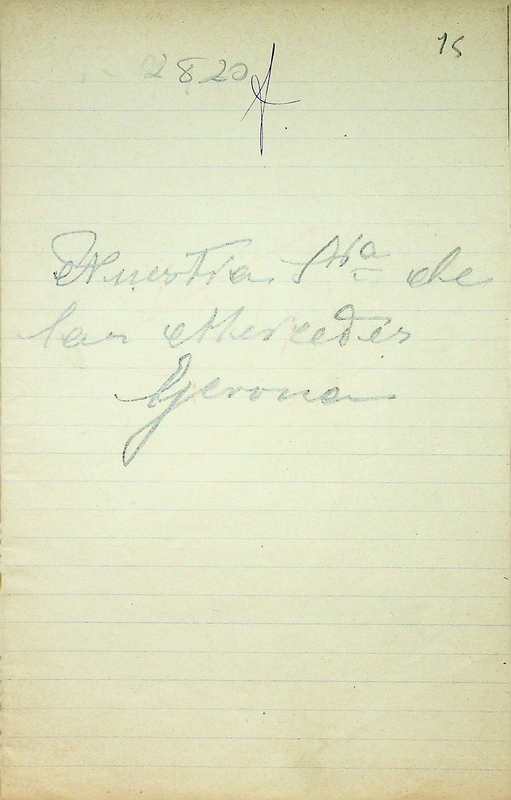 15
2820
Nuestra Sra de
las Mercedes
Gerona